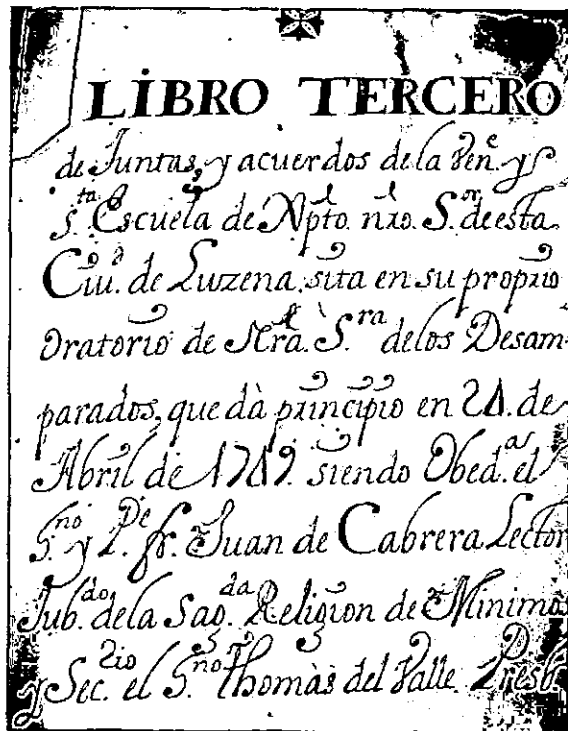 LIBRO TERCERO
de Juntas, y acuerdos de la Ven.e y
S.ta Escuela de Xpto. nro. S.or de esta
Ciu.d de Luzena, sita en su proprio
Oratorio de Nrã. S.ra de los Desam-
parados, que dà principio en 24. de
Abril de 1749. siendo Obed.a el
y P.e fr. Juan de Cabrera Lector
Jub.do de la Sag.da Religion de Minimos
y Sec.rio el Thomàs del Valle Presb.